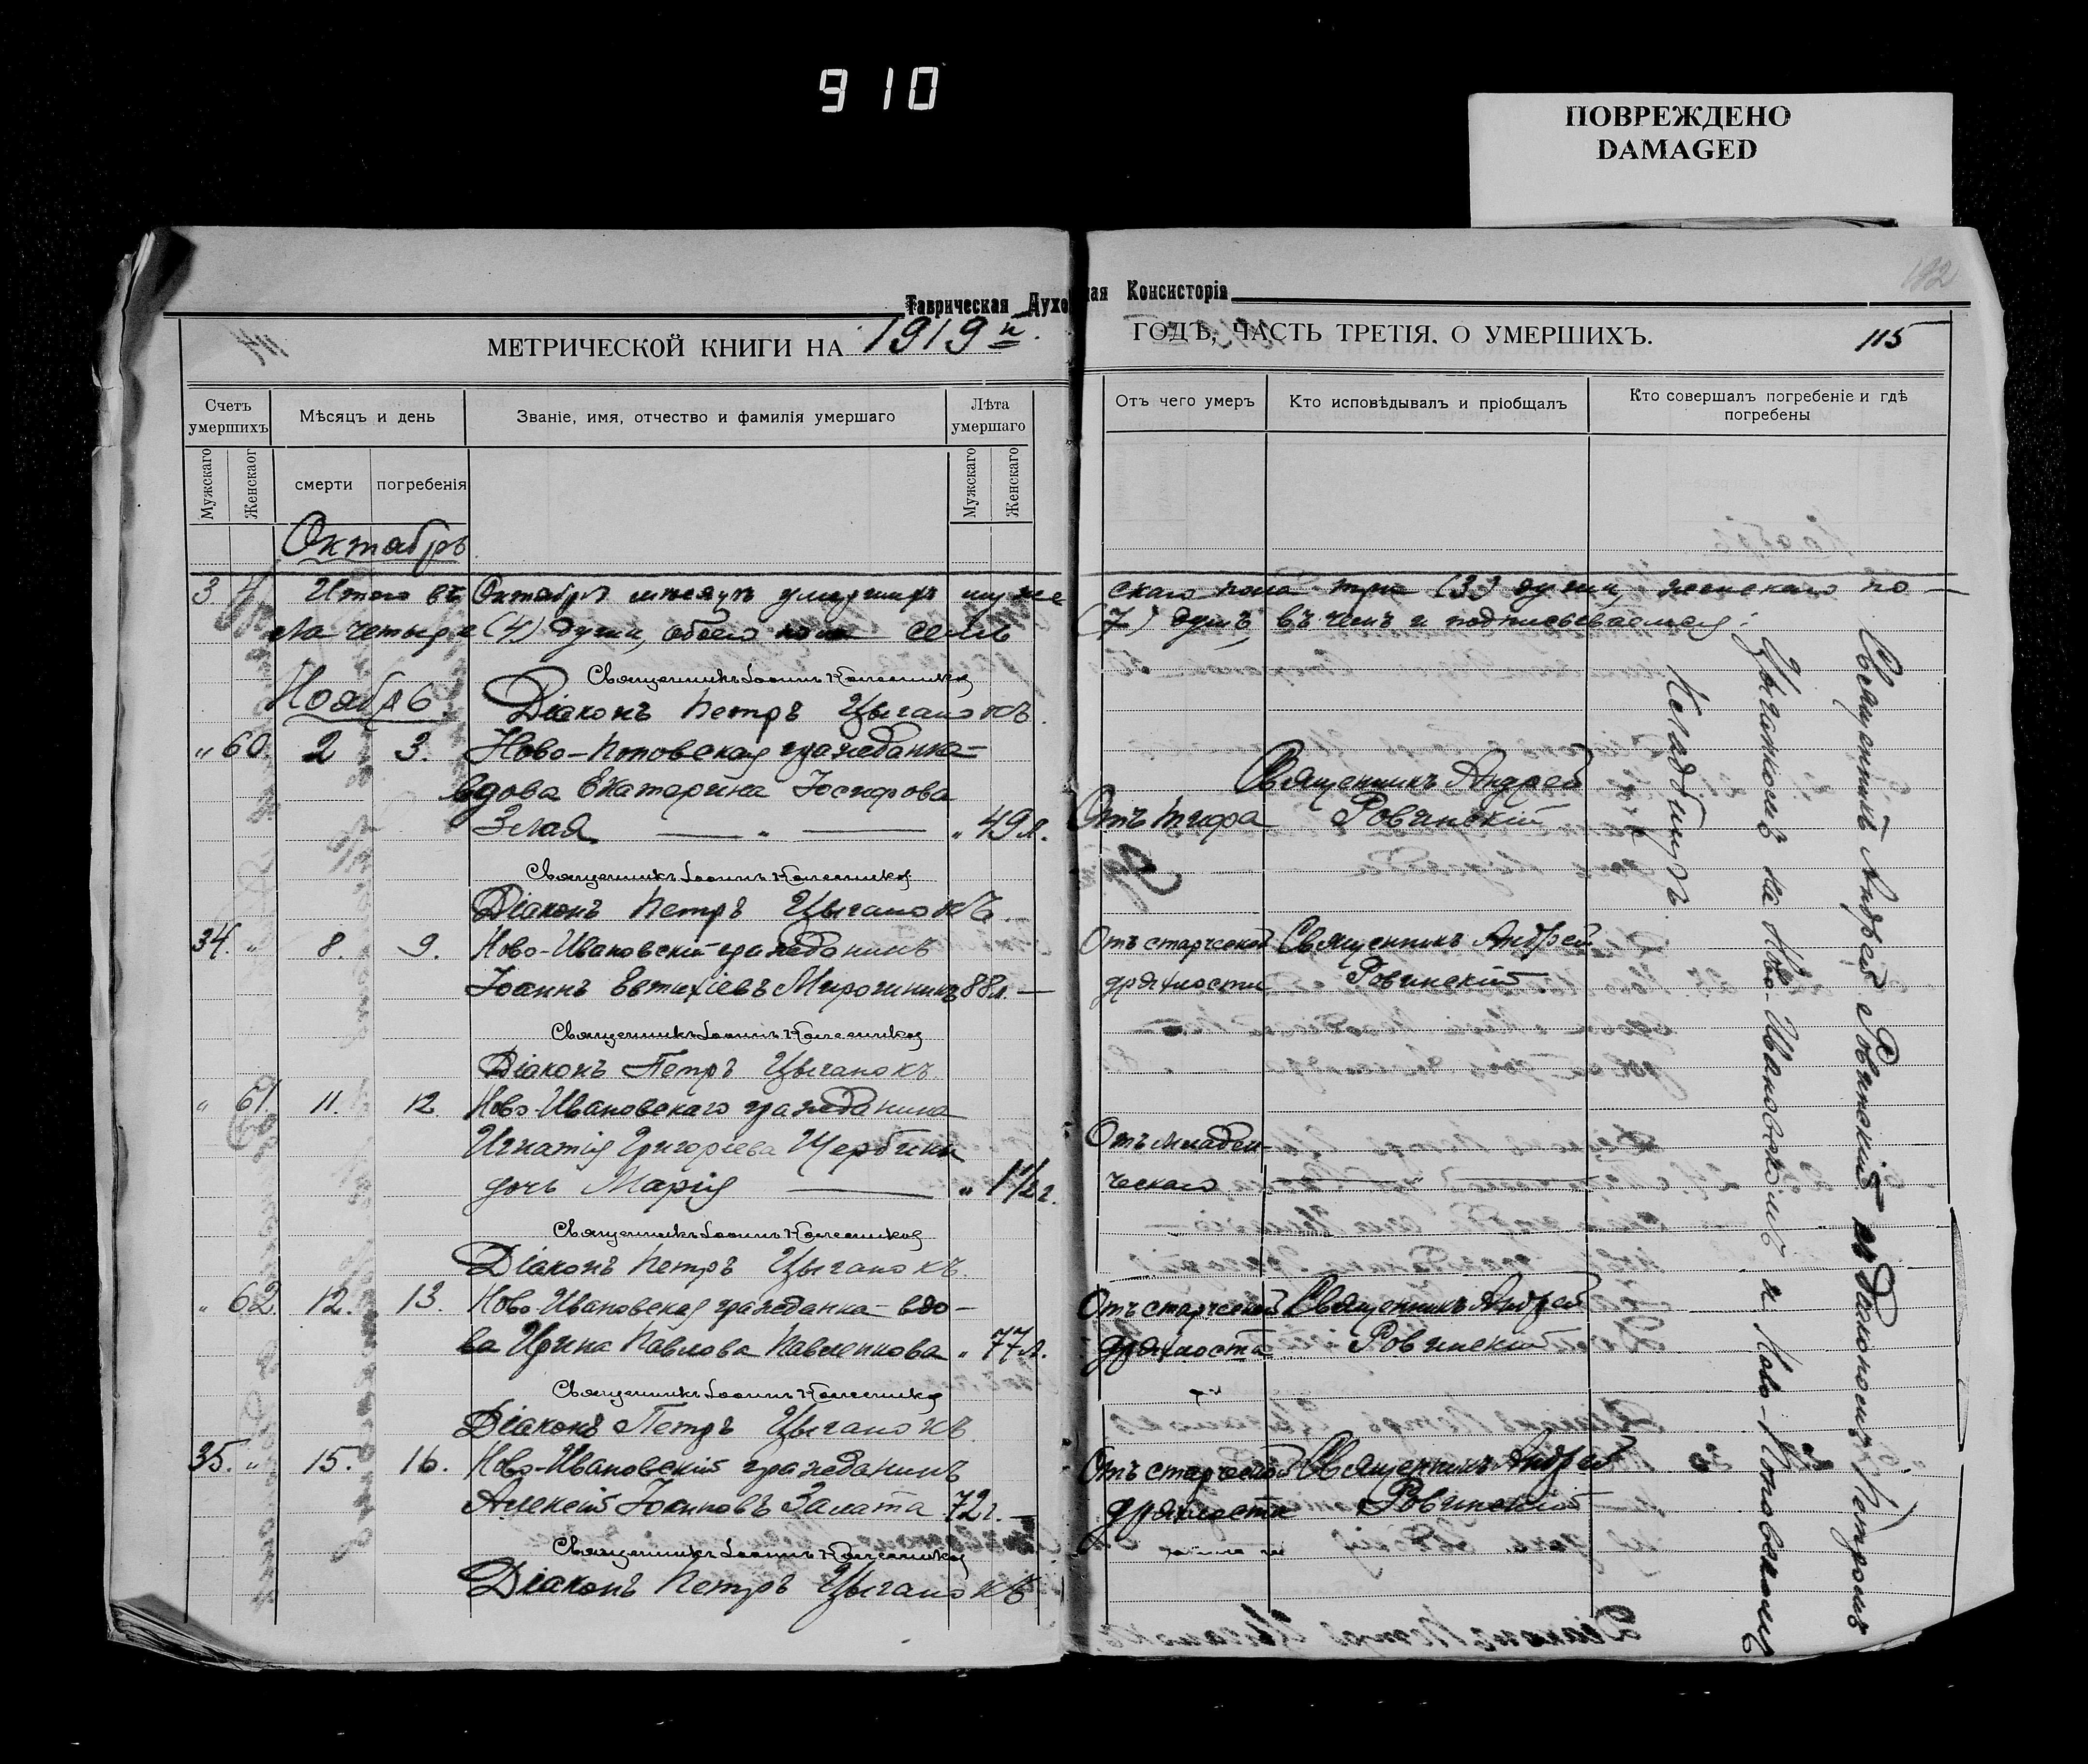 910
ПОВРЕЖДЕНО
DAMAGED
Таврическая Духо
ная Консисторія
МЕТРИЧЕСКОЙ КНИГИ НА 1919 й.
ГОДЪ, ЧАСТЬ ТРЕТІЯ. О УМЕРШИХЪ.
115
192
Счетъ умершихъ
Мѣсяцъ и день
Званіе, имя, отчество и фамилія умершаго
Лѣта умершаго
Отъ чего умеръ
Кто исповѣдывалъ и пріобщалъ
Кто совершалъ погребеніе и гдѣ погребены
Мужскаго
Женскаог
смерти
погребенія
Мужскаго
Женскаго
Октябрь
3 4 Итого въ Октябрѣ мѣсяцѣ умершихъ муже
скаго пола три (3) души, женскаго по—
ла четыре (4) души, обоего пола семь
(7) душъ, въ чемъ и подписываемся:
Священникъ Іоаннъ
Ноябрь
Діаконъ Петръ Цыганокъ.
„ 60. 2 3. Ново-Поповская гражданка—
вдова Екатерина Іосифова
Злая — „ — „ 49 л.
Отъ тифа
Священникъ Андрей
Ровинскій
Священникъ Іоаннъ
Діаконъ Петръ Цыганокъ.
34. „ 8. 9. Ново-Ивановскій гражданинъ
Іоаннъ Евтихіевъ 88 л. —
Отъ старческой
дряхлости
Священникъ Андрей
Ровинскій.
Священникъ Іоаннъ
Діаконъ Петръ Цыганокъ.
„ 61 11. 12. Ново-Ивановскаго гражданина
Игнатія Григоріева Щербины
дочь Марія — „ 1 1/2 г.
Отъ младен-
ческаго — „ —
Священникъ Іоаннъ
Діаконъ Петръ Цыганокъ.
„ 62 12. 13. Ново-Ивановская гражданка—вдо—
ва Ирина Павлова Павленкова „ 77 л.
Отъ старческой
дряхлости
Священникъ Андрей
Ровинскій
Священникъ Іоаннъ
Діаконъ Петръ Цыганокъ
35. „ 15. 16. Ново-Ивановскій гражданинъ
Алексій Іоанновъ Залата 72 г. —
Отъ старческой
дряхлости
Священникъ Андрей
Ровинскій
Священникъ Іоаннъ
Діаконъ Петръ Цыганокъ
Священникъ Андрей Ровинскій съ діакономъ Петромъ
Цыганкомъ на Ново-Ивановскомъ и Ново-Поповскомъ
кладбищѣ.